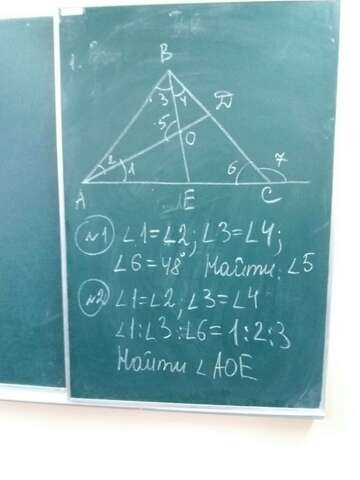 1.
B
3 4
D
5
O
2 1
6 7
A E C
№1 ∠1=∠2; ∠3=∠4;
∠6=48° Найти: ∠5
№2 ∠1=∠2, ∠3=∠4
∠1:∠3:∠6=1:2:3
Найти ∠AOE